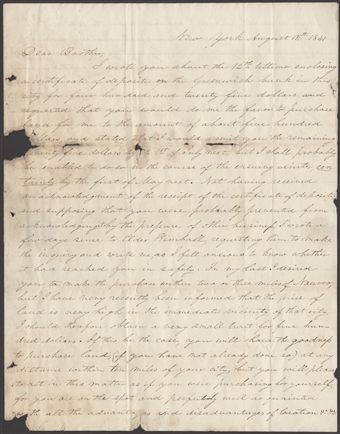 New York August 18th 1841
Dear Brother,
I wrote you about the 12th ultimo enclosing
a certificate of deposite on the Greenwich bank in this
city for five hundred and twenty five dollars, and
requested that you would do me the favor to purchase
land for me to the amount of about five hundred
dollars and stated that I would remit you the remaining
dollars but I shall probably
be enabled to do so in the course of the ensuing winter, cer
tainly by the first of May next. Not having received
an acknowledgment of the receipt of the certificate of deposite
and supposing that you were probably prevented from
acknowledging by the pressure of other business, I wrote a
few days since to Elder Kimball, requesting him to make
the enquiry and write me, as I felt anxious to know whether
it had reached you in safety. In my last I desired
you to make the purchase within two or three miles of Nauvoo,
but I have very recently been informed that the price of
land is very high in the immediate vicinity of that city,
I should therefore obtain a very small tract for five hun
dred dollars. If this be the case, you will have the goodness
to purchase land (if you have not already done so) at any
distance within ten miles of your city, but you will please
to act in this matter as if you were purchasing for yourself,
for you are on the spot and perfectly well acquainted
with all the advantages and disadvantages of location &c